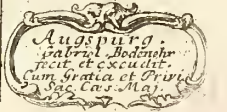 Augspurg.
Gabriel Bodenehr
fecit et excudit.
Cum Gratia et Privi.
Sac. Cæs. Maj.